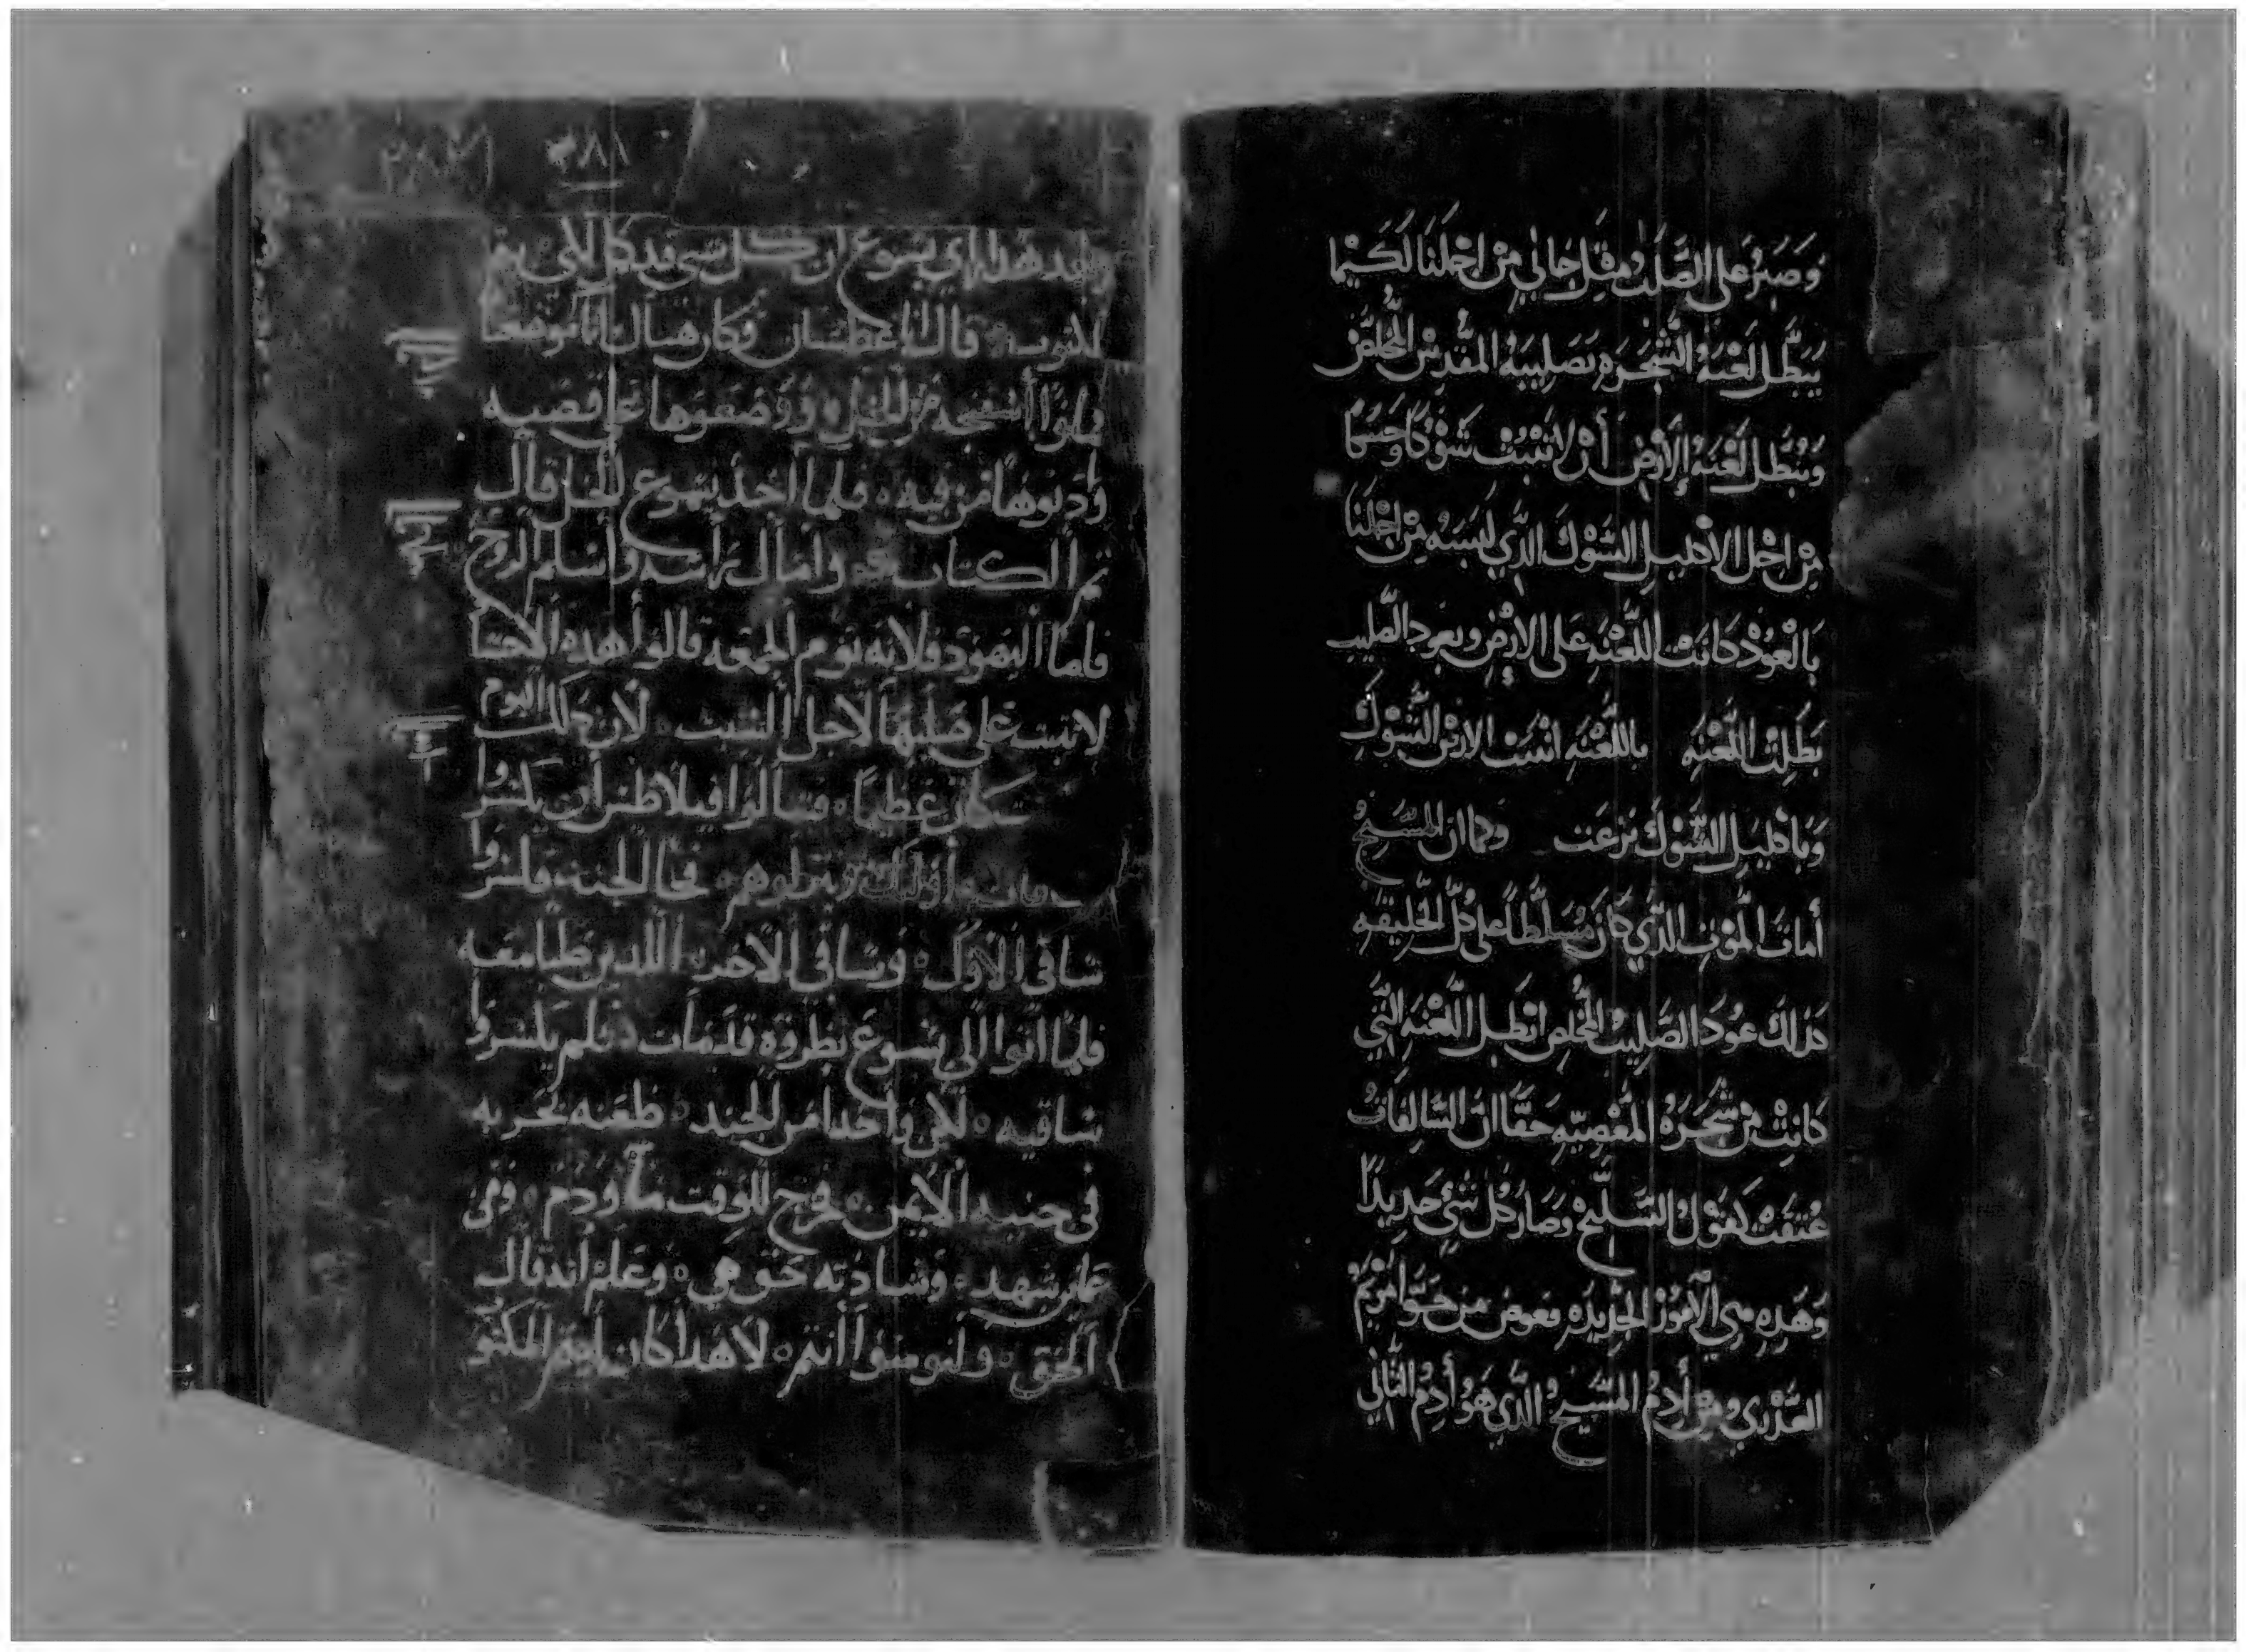 وَصَبَرُ على الصَّلبُ مثِل جَاني مِنْ اجْلنَا لَكَيْمَا
يَبَطَّل لَعْنَة الشَّجَرَه بَصَلِيبَهُ المقُدسْ المُخلصْ
وَيُبُطَّل لَعْنَة الأَرْضِ أنْ لا تنْبُتْ شَوْكًا وَحَسَكًا
مِنْ اجْل الاكليل الشَوْكَ الذِّي لبَسَهُ مِنْ اجْلنَا
بَالْعُودْ كَانَتْ اللَّعْنَه عَلى الارْضِ وبعود الصَّليب
بَطَلِتْ اللَّعْنَه باللَّعْنَهِ انْبَتَتْ الارْضْ الشَّوْكَ
وَبَاكليل الشَّوْكَ نزعَت وكما ان المسَيحُ
أماتَ المُوْت الذَّي كَانَ مُسَلَّطاً على كُلَّ الخَليقَه
كذلكَ عوُدَ الصَّليبُ المُخُلص ابَطَل اللَّعْنَه التَّيِ
كَانِتْ مِنْ شَجَرَةُ المَعْصِيَّهِ حَقَّا انَ السَّالِفَاتُ
عُتقَتْ كقَوْل السَّليَّحْ وَصَارَ كُل شَيْ جَدِيدًا
وَهَذِهِ هي الأمُوُرْ الجْديدَه فعوض من حَوَّا مَرْيَمُ
العَذْرَي ومِنْ أَدمُ المسَّيحُ الذَّي هَوُ أَدمُ الثَّاني
٢٨١
وبعد هدا راي يسوع ان كل شي قد كمل لكي يتم
المكتوب قال انا عطشان وكان هناك انا موضوعا
فملوا اسفنجه من الخل ووضعوها على قصبه
وادنوها من فيه فلما اخد يسوع الخل قال
تم الكتاب وامال راسه واسلم الروح
فاما اليهود فلانه يوم الجمعه قالوا هده الاجساد
لا تبت على صلبها لاجل السبت لان دلك اليوم
كان عظيمًا فسالوا فيلاطس ان يكسروا
اوليك وينزلوهم فجا الجند فكسروا
ساقي الاول وساقي الاخر اللدين صلبا معه
فلما اتوا الى يسوع نظروه قد مات فلم يكسروا
ساقيه لكن واحدا من الجند طعنه بحربه
في جنبه الايمن فخرج للوقت ما ودم ومن
عاين شهد وشهادته حق هي وعلم انه قال
الحق ولتومنوا انتم لان هدا كان ليتم المكتو